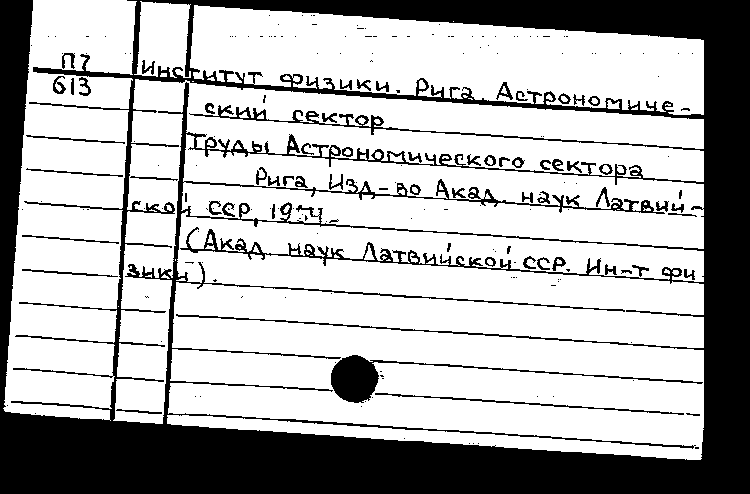 П7 Институт физики. Рига. Астрономиче-
613
ский сектор
Труды Астрономического сектора
Рига, Изд-во Акад. наук Латвий-
ской ССР,
(Акад. наук Латвийской ССР. Ин-т фи
зики).